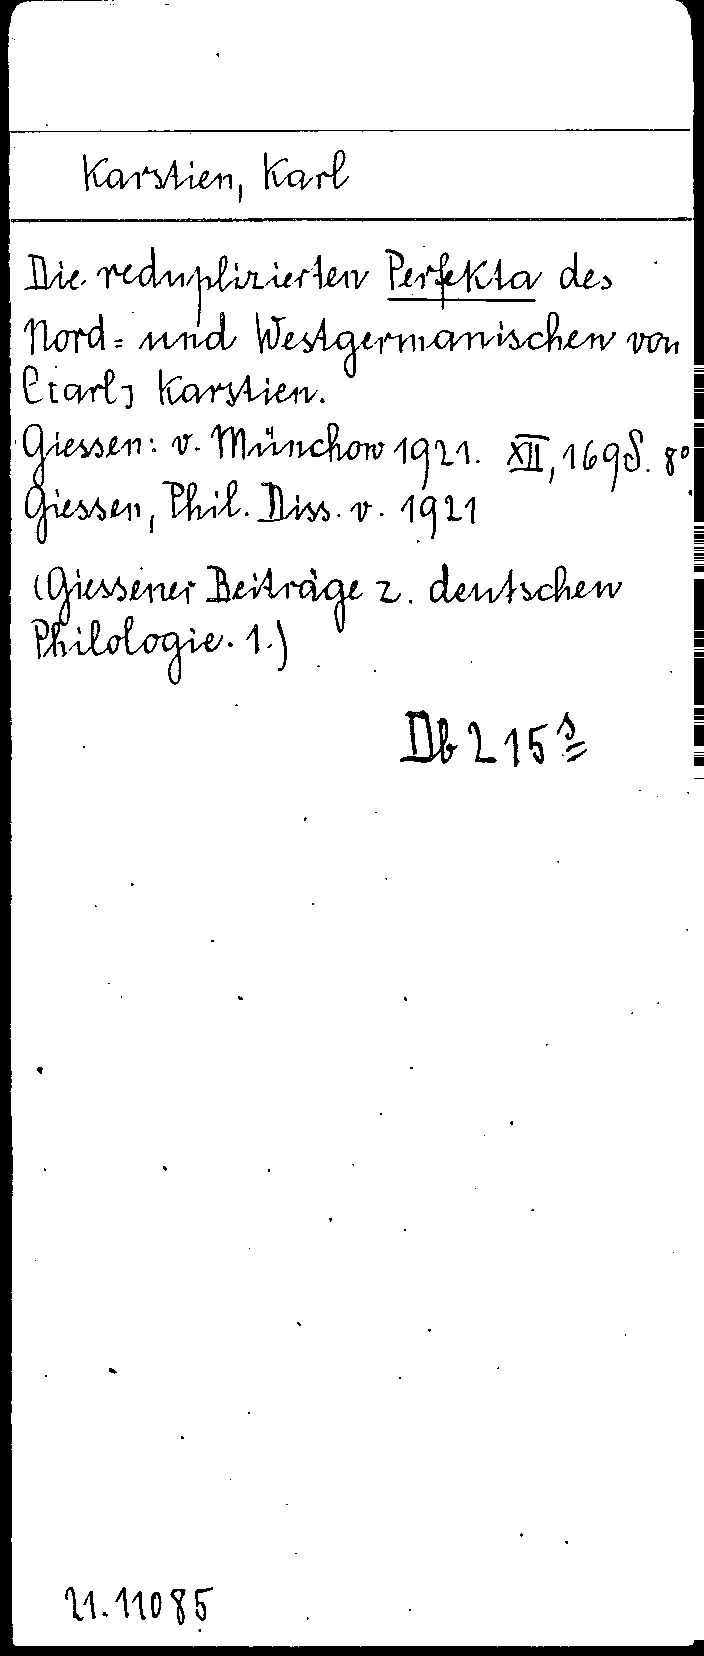 Karstien, Karl
Die reduplizierten Perfekta des
Nord= und Westgermanischen von
C[arl] Karstien.
Giessen: v. Münchow 1921. XII, 169 S. 8°
Giessen, Phil. Diss. v. 1921
(Giessener Beiträge z. deutschen
Philologie. 1.)
Db 215 s
21.11085